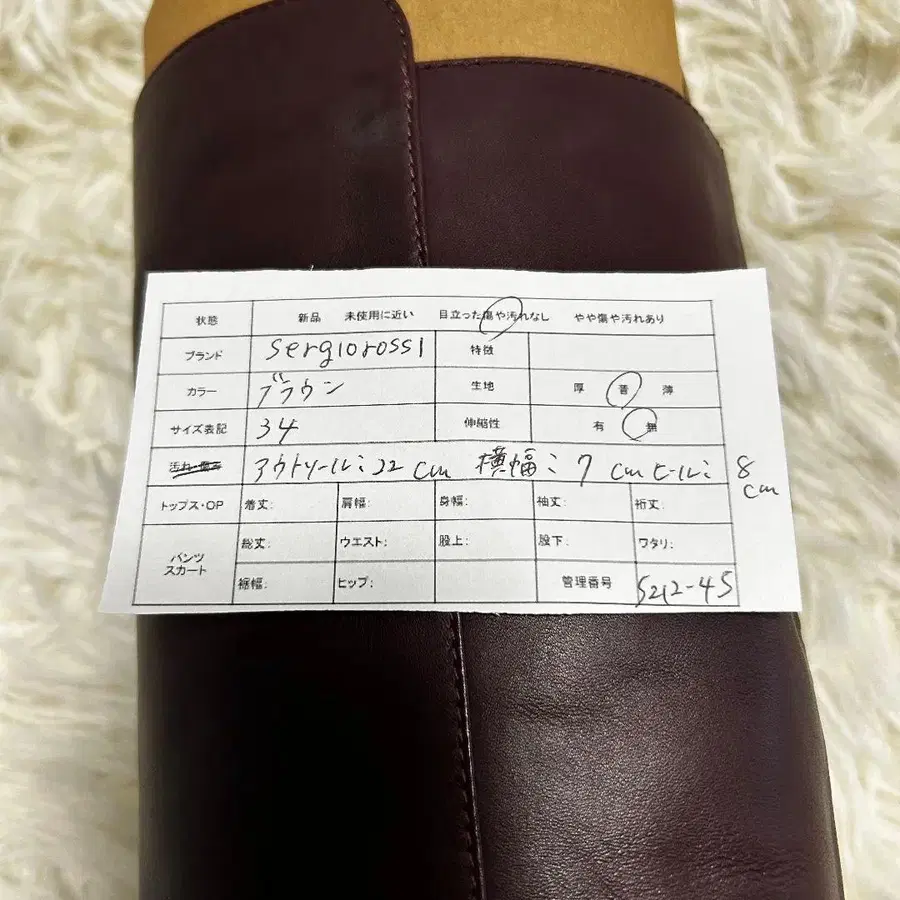 状態 新品 未使用に近い 目立った傷や汚れなし やや傷や汚れあり
ブランド sergiorossi 特徴
カラー ブラウン 生地 厚 普 薄
サイズ表記 34 伸縮性 有 無
汚れ・傷み アウトソール:22cm 横幅:7cmヒール:8cm
トップス・OP 着丈: 肩幅: 身幅: 袖丈: 裄丈:
パンツ スカート 総丈: ウエスト: 股上: 股下: ワタリ:
裾幅: ヒップ: 管理番号 5212-45